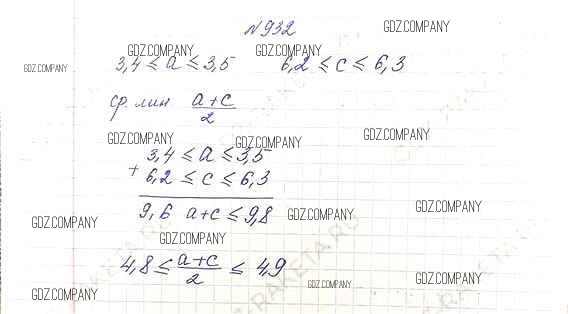 N932
GDZ.COMPANY
GDZ.COMPANY GDZ.COMPANY
GDZ.COMPANY 3,4 ≤ a ≤ 3,5 6,2 ≤ c ≤ 6,3
ср. лин a+c
2
GDZ.COMPANY GDZ.COMPANY GDZ.COMPANY
3,4 ≤ a ≤ 3,5
+ 6,2 ≤ c ≤ 6,3
9,6 a+c ≤ 9,8
GDZ.COMPANY GDZ.COMPANY GDZ.COMPANY
GDZ.COMPANY
4,8 ≤ a+c ≤ 4,9
2
GDZ.COMPANY GDZ.COMPANY GDZ.COMPANY